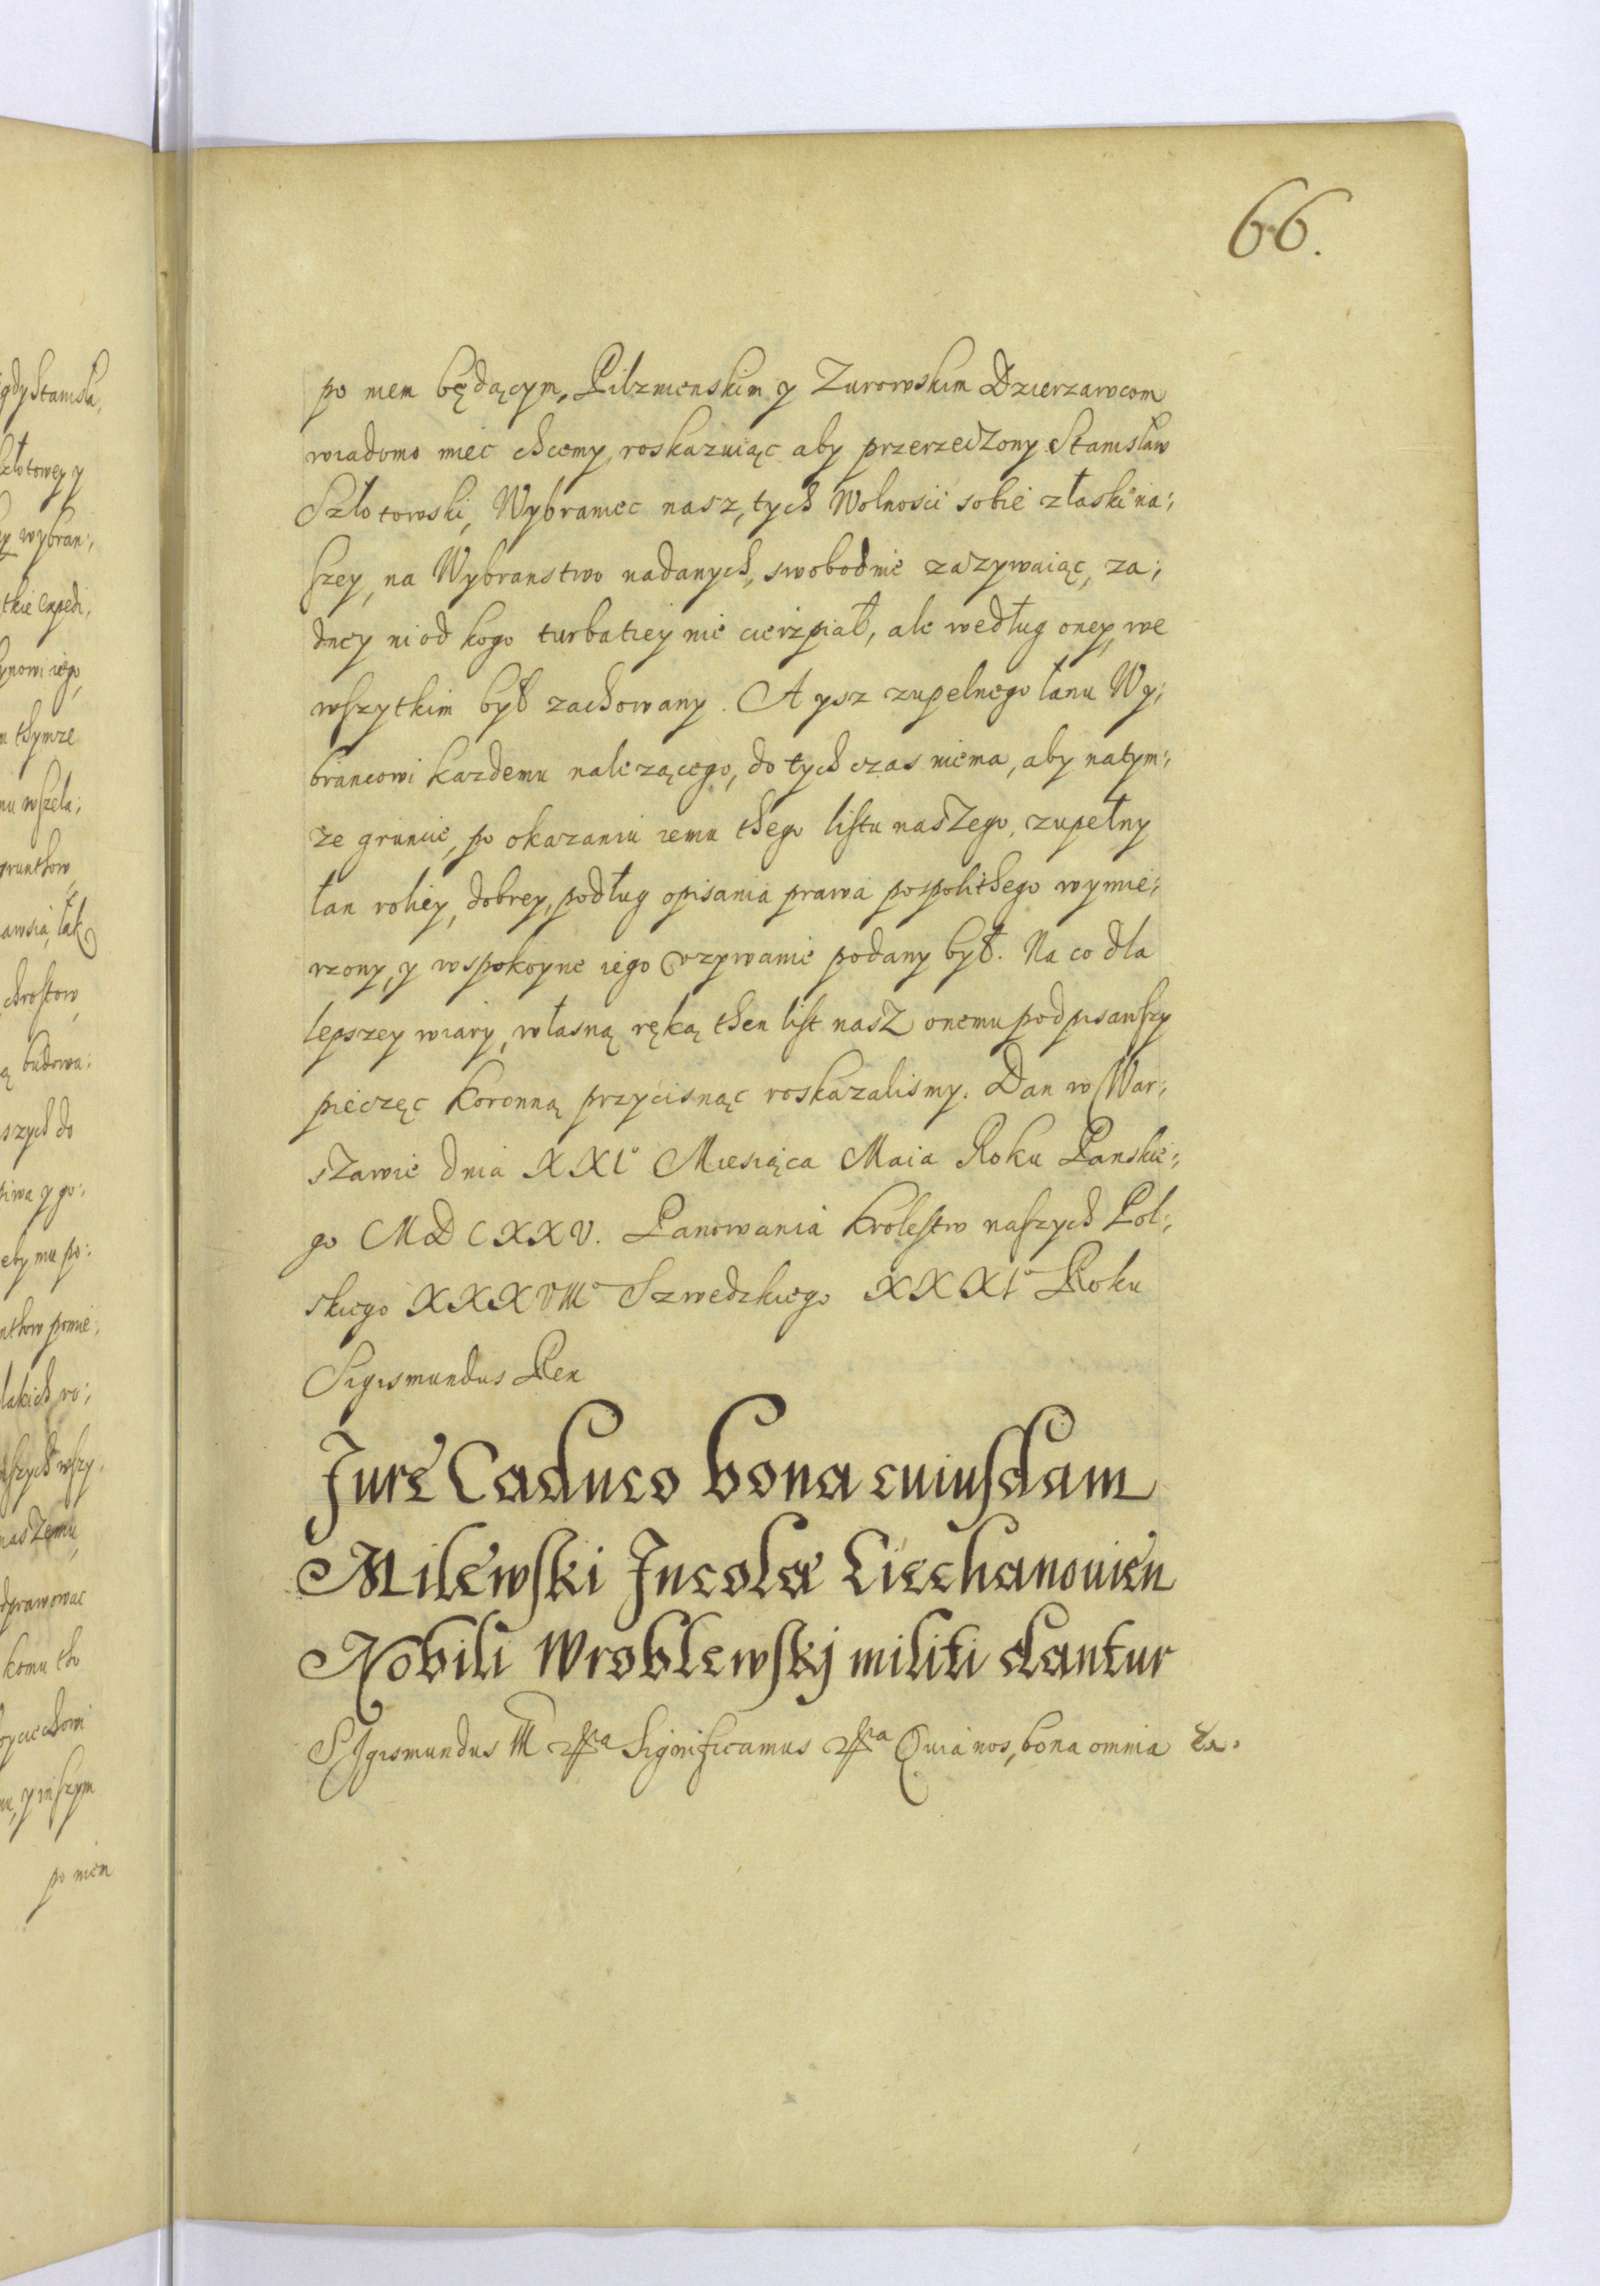 66.
po nem będącym, Pilznenskim y Zurowskim Dzierzawcom
wiadomo miec chcemy, roskazuiąc aby przerzeczony Stanisław
Szłotowski, Wybraniec nasz, tych Wolnosci sobie złaski na;
szey, na Wybranstwo nadanych, swobodnie zazywaiąc, za;
dney niod kogo turbatiey nie cierzpiał, ale według oney, we
wszytkim był zachowany. A ysz zupelnego łanu Wy;
brancowi kazdemu nalezącego, do tych czas niema, aby natym;
ze gruncie, po okazaniu iemu thego listu naszego, zupełny
łan roliey, dobrey, podług opisania prawa pospolithego wymie;
rzony, y wspokoyne iego vzywanie podany był. Na co dla
lepszey wiary, własną ręką then list nasz onemu podpisawszy
pieczęc koronną przycisnąc roskazalismy. Dan w War;
szawie dnia XXI° Miesiąca Maia Roku Panskie;
go MDCXXV. Panowania krolestw naszych Pol;
skiego XXXVIII° Szwedzkiego XXXI° Roku
Sigismundus Rex
Jure Caduco bona cuiusdam
Milewski Incolæ Ciechanouien
Nobili Wroblewskj militi dantur
SIgismundus III Significamus Quia nos, bona omnia
gdy Stanisła,
wybran;
tkie Expedi,
synowi iego,
thymze
wszela;
gruntkow
chrostow,
budowa;
szych do
piwa y go;
eby mu po;
naszemu,
komu tho
y inszym
po niem